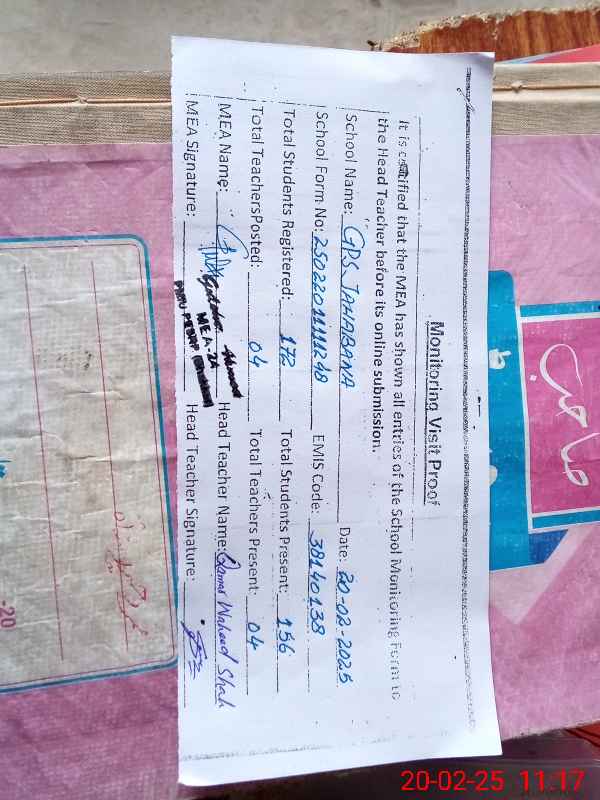 Monitoring Visit Proof
It is certified that the MEA has shown all entries of the School Monitoring Form to
the Head Teacher before its online submission.
School Name: GPS JAHABANA Date: 20-02-2025
School Form No: 2502201111248 EMIS Code: 38140138
Total Students Registered: 172 Total Students Present: 156
Total TeachersPosted: 04 Total Teachers Present: 04
MEA Name: Head Teacher Name: Qamar Waheed Shah
MEA Signature: MEA-2A Head Teacher Signature:
صاحب
-20
20-02-25 11:17